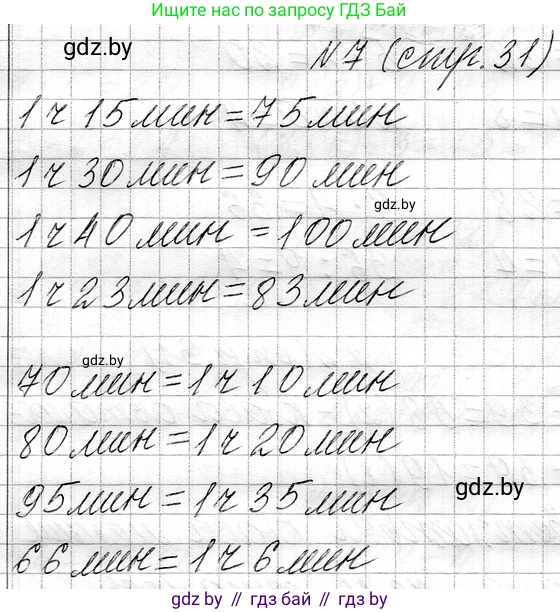 Ищите нас по запросу ГДЗ Бай
gdz.by
N 7 (стр. 31)
1 ч 15 мин = 75 мин
1 ч 30 мин = 90 мин
gdz.by
1 ч 40 мин = 100 мин
1 ч 23 мин = 83 мин
gdz.by
70 мин = 1 ч 10 мин
80 мин = 1 ч 20 мин
95 мин = 1 ч 35 мин
gdz.by
66 мин = 1 ч 6 мин
gdz.by // гдз бай // gdz by